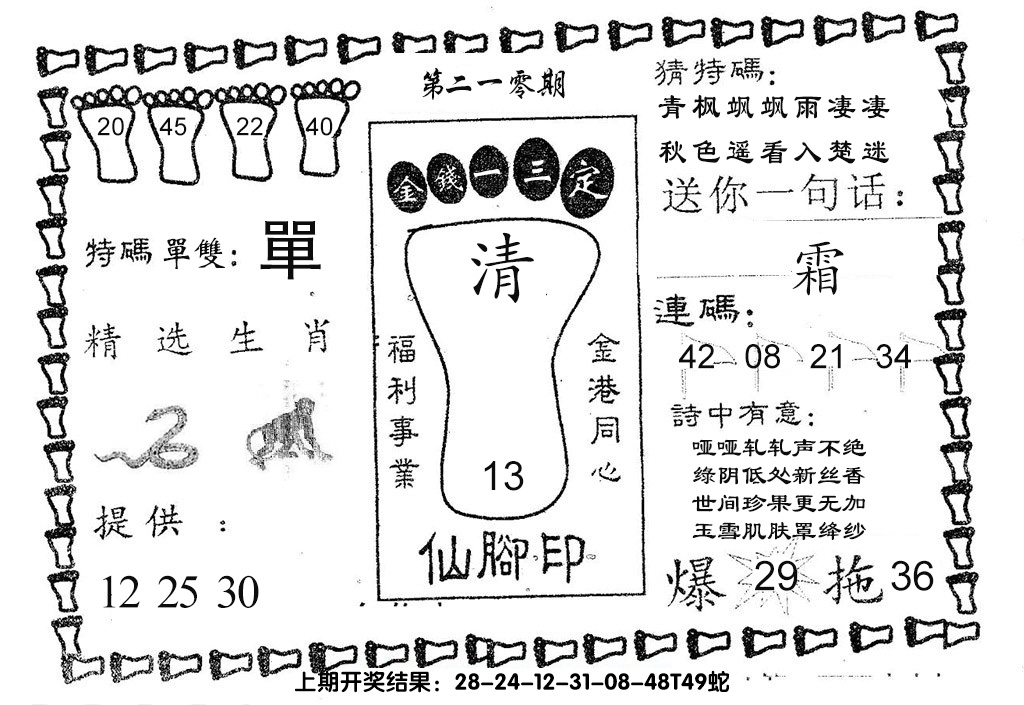 第二一零期
20 45 22 40
特碼單雙：單
精选生肖
提供：
12 25 30
金錢一三定
清
福利事業
金港同心
13
仙腳印
猜特碼：
青枫飒飒雨凄凄
秋色遥看入楚迷
送你一句话：
霜
連碼：
42 08 21 34
詩中有意：
哑哑轧轧声不绝
绿阴低处新丝香
世间珍果更无加
玉雪肌肤罩绛纱
爆 29 拖 36
上期开奖结果：28-24-12-31-08-48T49蛇